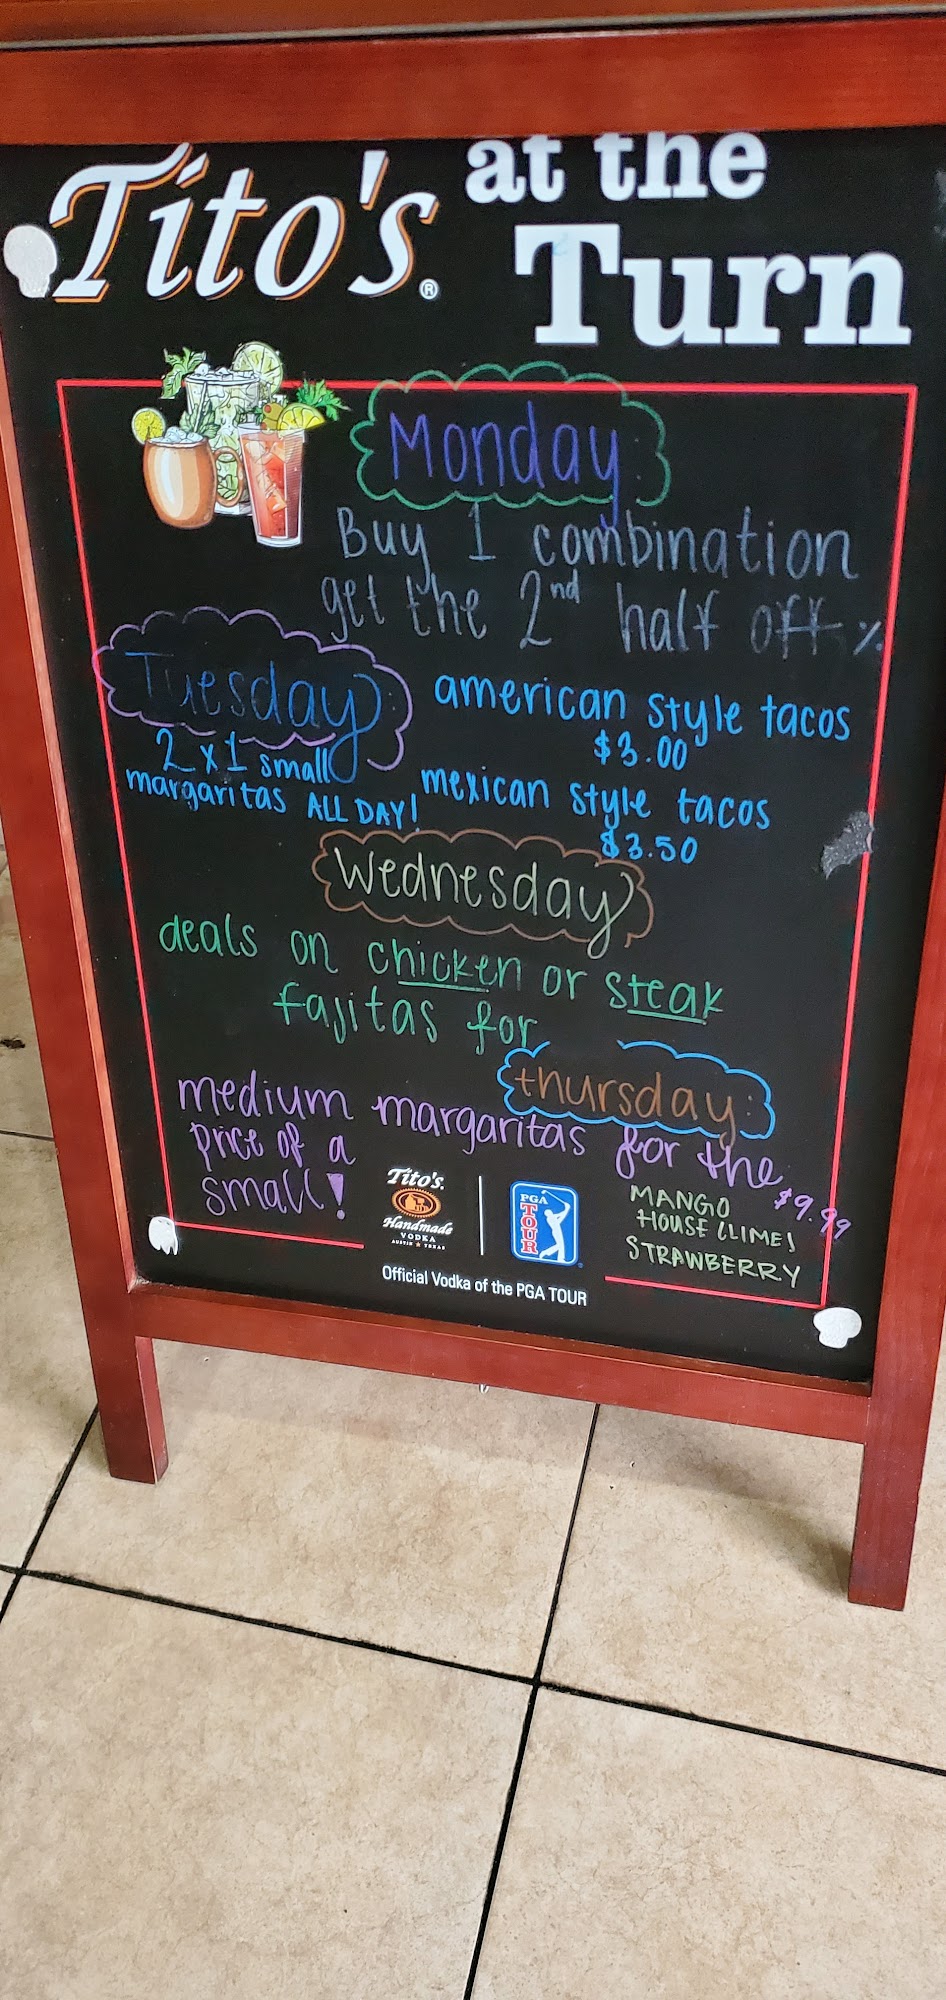 Tito's® at the Turn
Monday:
Buy 1 combination
get the 2nd half off %
Tuesday:
2 x 1 small
margaritas ALL DAY!
american style tacos
$3.00
mexican style tacos
$3.50
Wednesday
deals on chicken or steak
fajitas for
thursday:
medium margaritas for the
price of a
small!
$9.99
MANGO
HOUSE (LIME)
STRAWBERRY
Tito's.
Handmade
VODKA
AUSTIN ★ TEXAS
PGA
TOUR
Official Vodka of the PGA TOUR